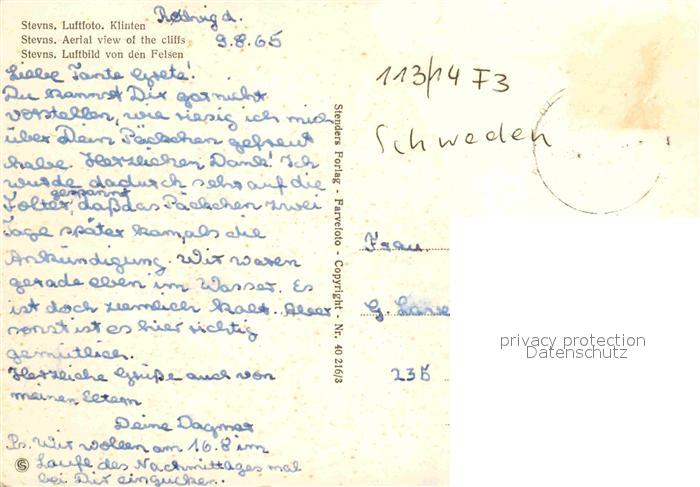 Stevns. Luftfoto. Klinten
Stevns. Aerial view of the cliffs
Stevns. Luftbild von den Felsen
Rødvig d.
9.8.65
Liebe Tante Grete!
Du kannst Dir gar nicht
vorstellen, wie riesig ich mich
über Dein Päckchen gefreut
habe. Herzlichen Dank! Ich
wurde dadurch sehr auf die
Folter gespannt, daß das Päckchen zwei
Tage später kam, als die
Ankündigung. Wir waren
gerade eben im Wasser. Es
ist doch ziemlich kalt. Aber
sonst ist es hier richtig
gemütlich.
Herzliche Grüße auch von
meinen Eltern
Deine Dagmar
Ps. Wir wollen am 16.8 im
Laufe des Nachmittages mal
bei Dir eingucken.
Stenders Forlag - Farvefoto - Copyright - Nr. 40 216/3
113/14 F3
Schweden
Frau
G.
23b
privacy protection
Datenschutz